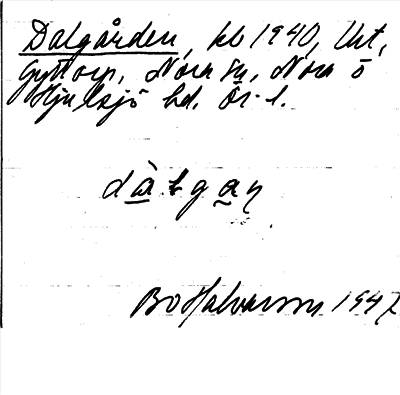 Dalgården, kb 1940, Urt,
Gyttorp, Nora sn, Nora o
Hjulsjö hd. Ör. l.
dàlgaɳ
Bo Halvarson 1947